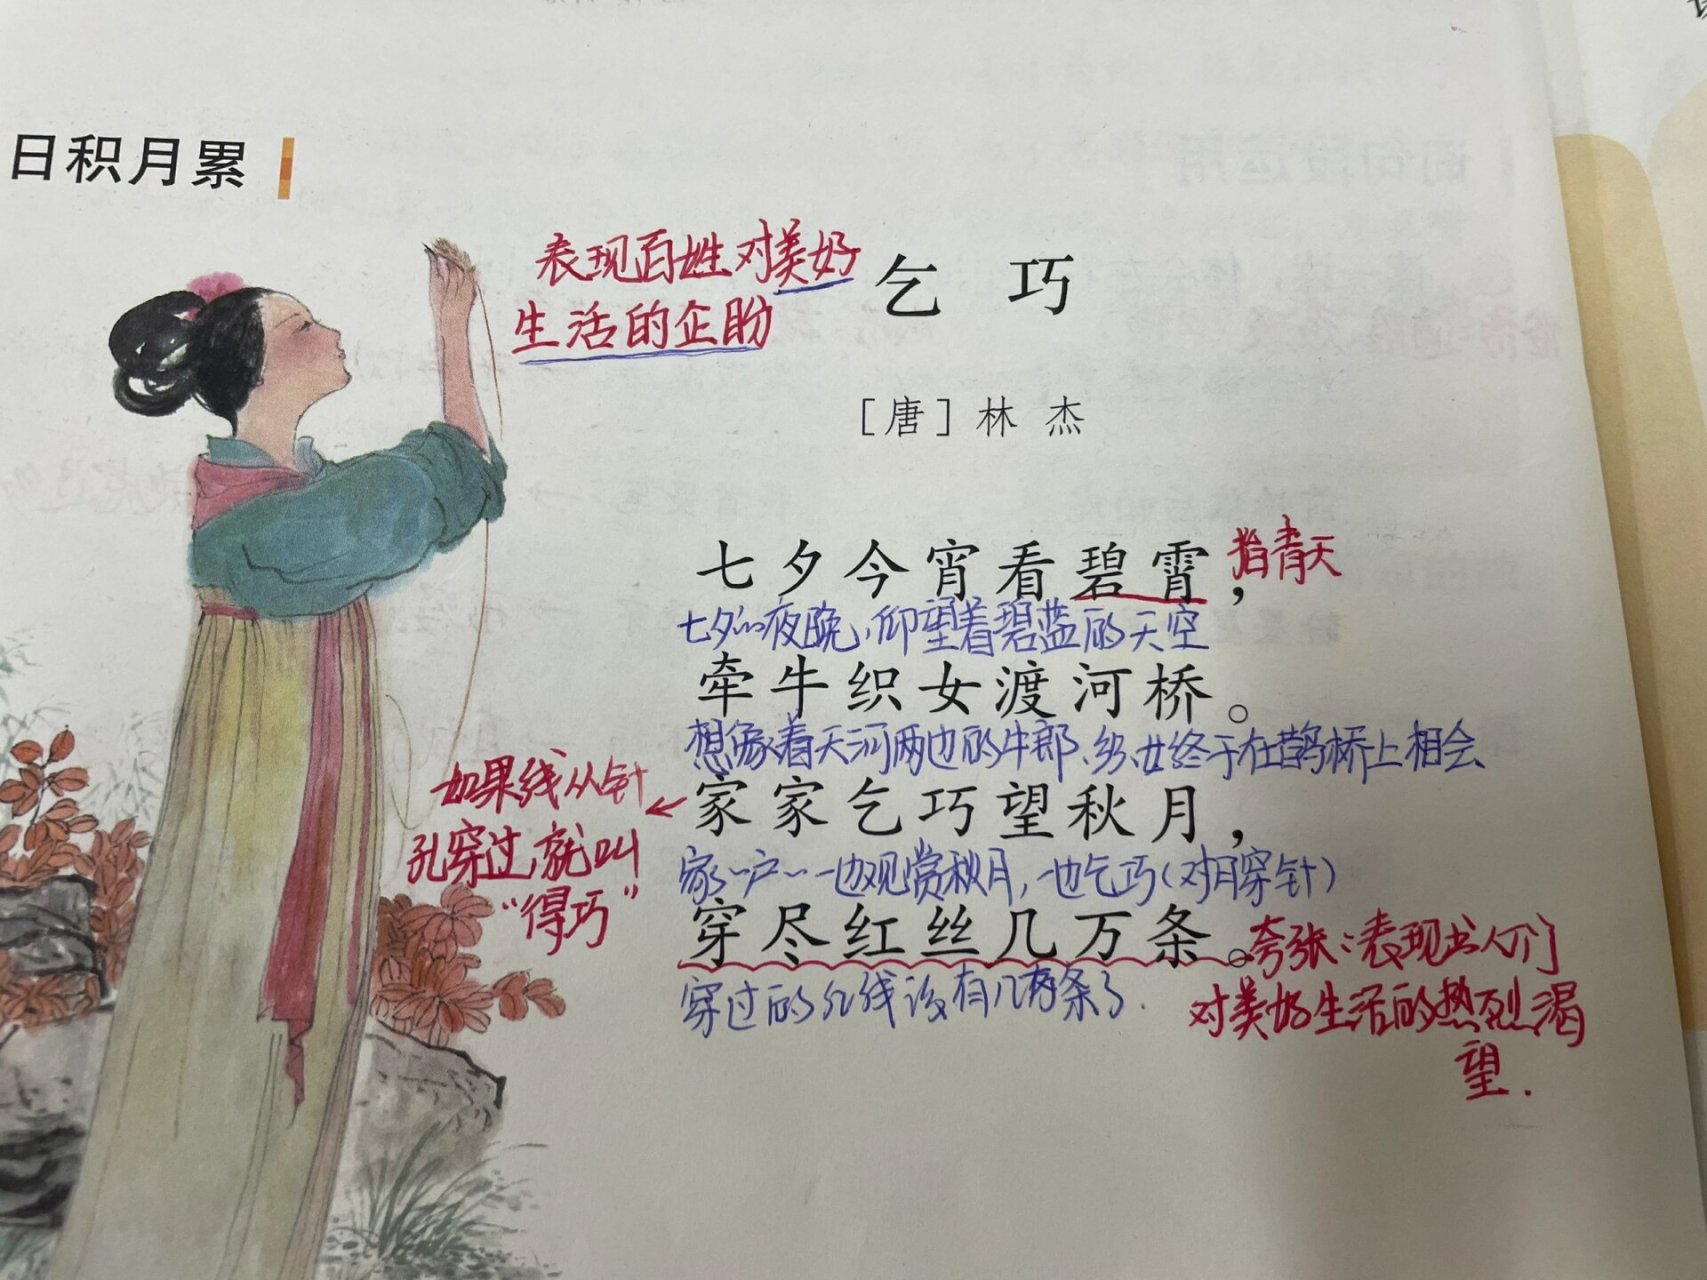 日积月累
表现百姓对美好
生活的企盼
乞巧
[唐]林杰
七夕今宵看碧霄，
指青天
七夕的夜晚，仰望着碧蓝的天空
牵牛织女渡河桥。
想象着天河两边的牛郎、织女终于在鹊桥上相会
如果线从针
孔穿过，就叫
“得巧”
家家乞巧望秋月，
家家户户一边观赏秋月，一边乞巧(对月穿针)
穿尽红丝几万条。
夸张：表现出人们
对美好生活的热烈渴
望.
穿过的红线该有几万条了.